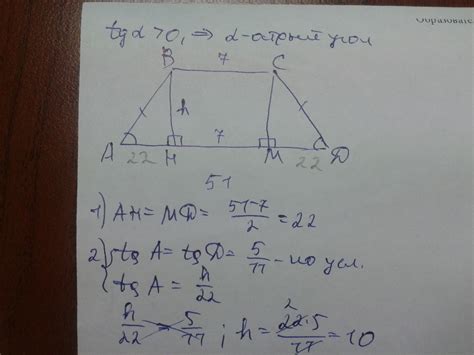 Образовате
tg α > 0, ⇒ α-острый угол
B 7 C
h
A 22 H 7 M 22 D
51
1) AH = MD = (51-7)/2 = 22
2) { tg A = tg D = 5/11 - по усл.
tg A = h/22
h/22 = 5/11 ; h = (22·5)/11 = 10
2